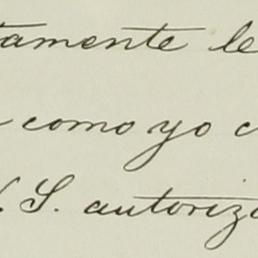 tamente le
como yo c
S. autoriza